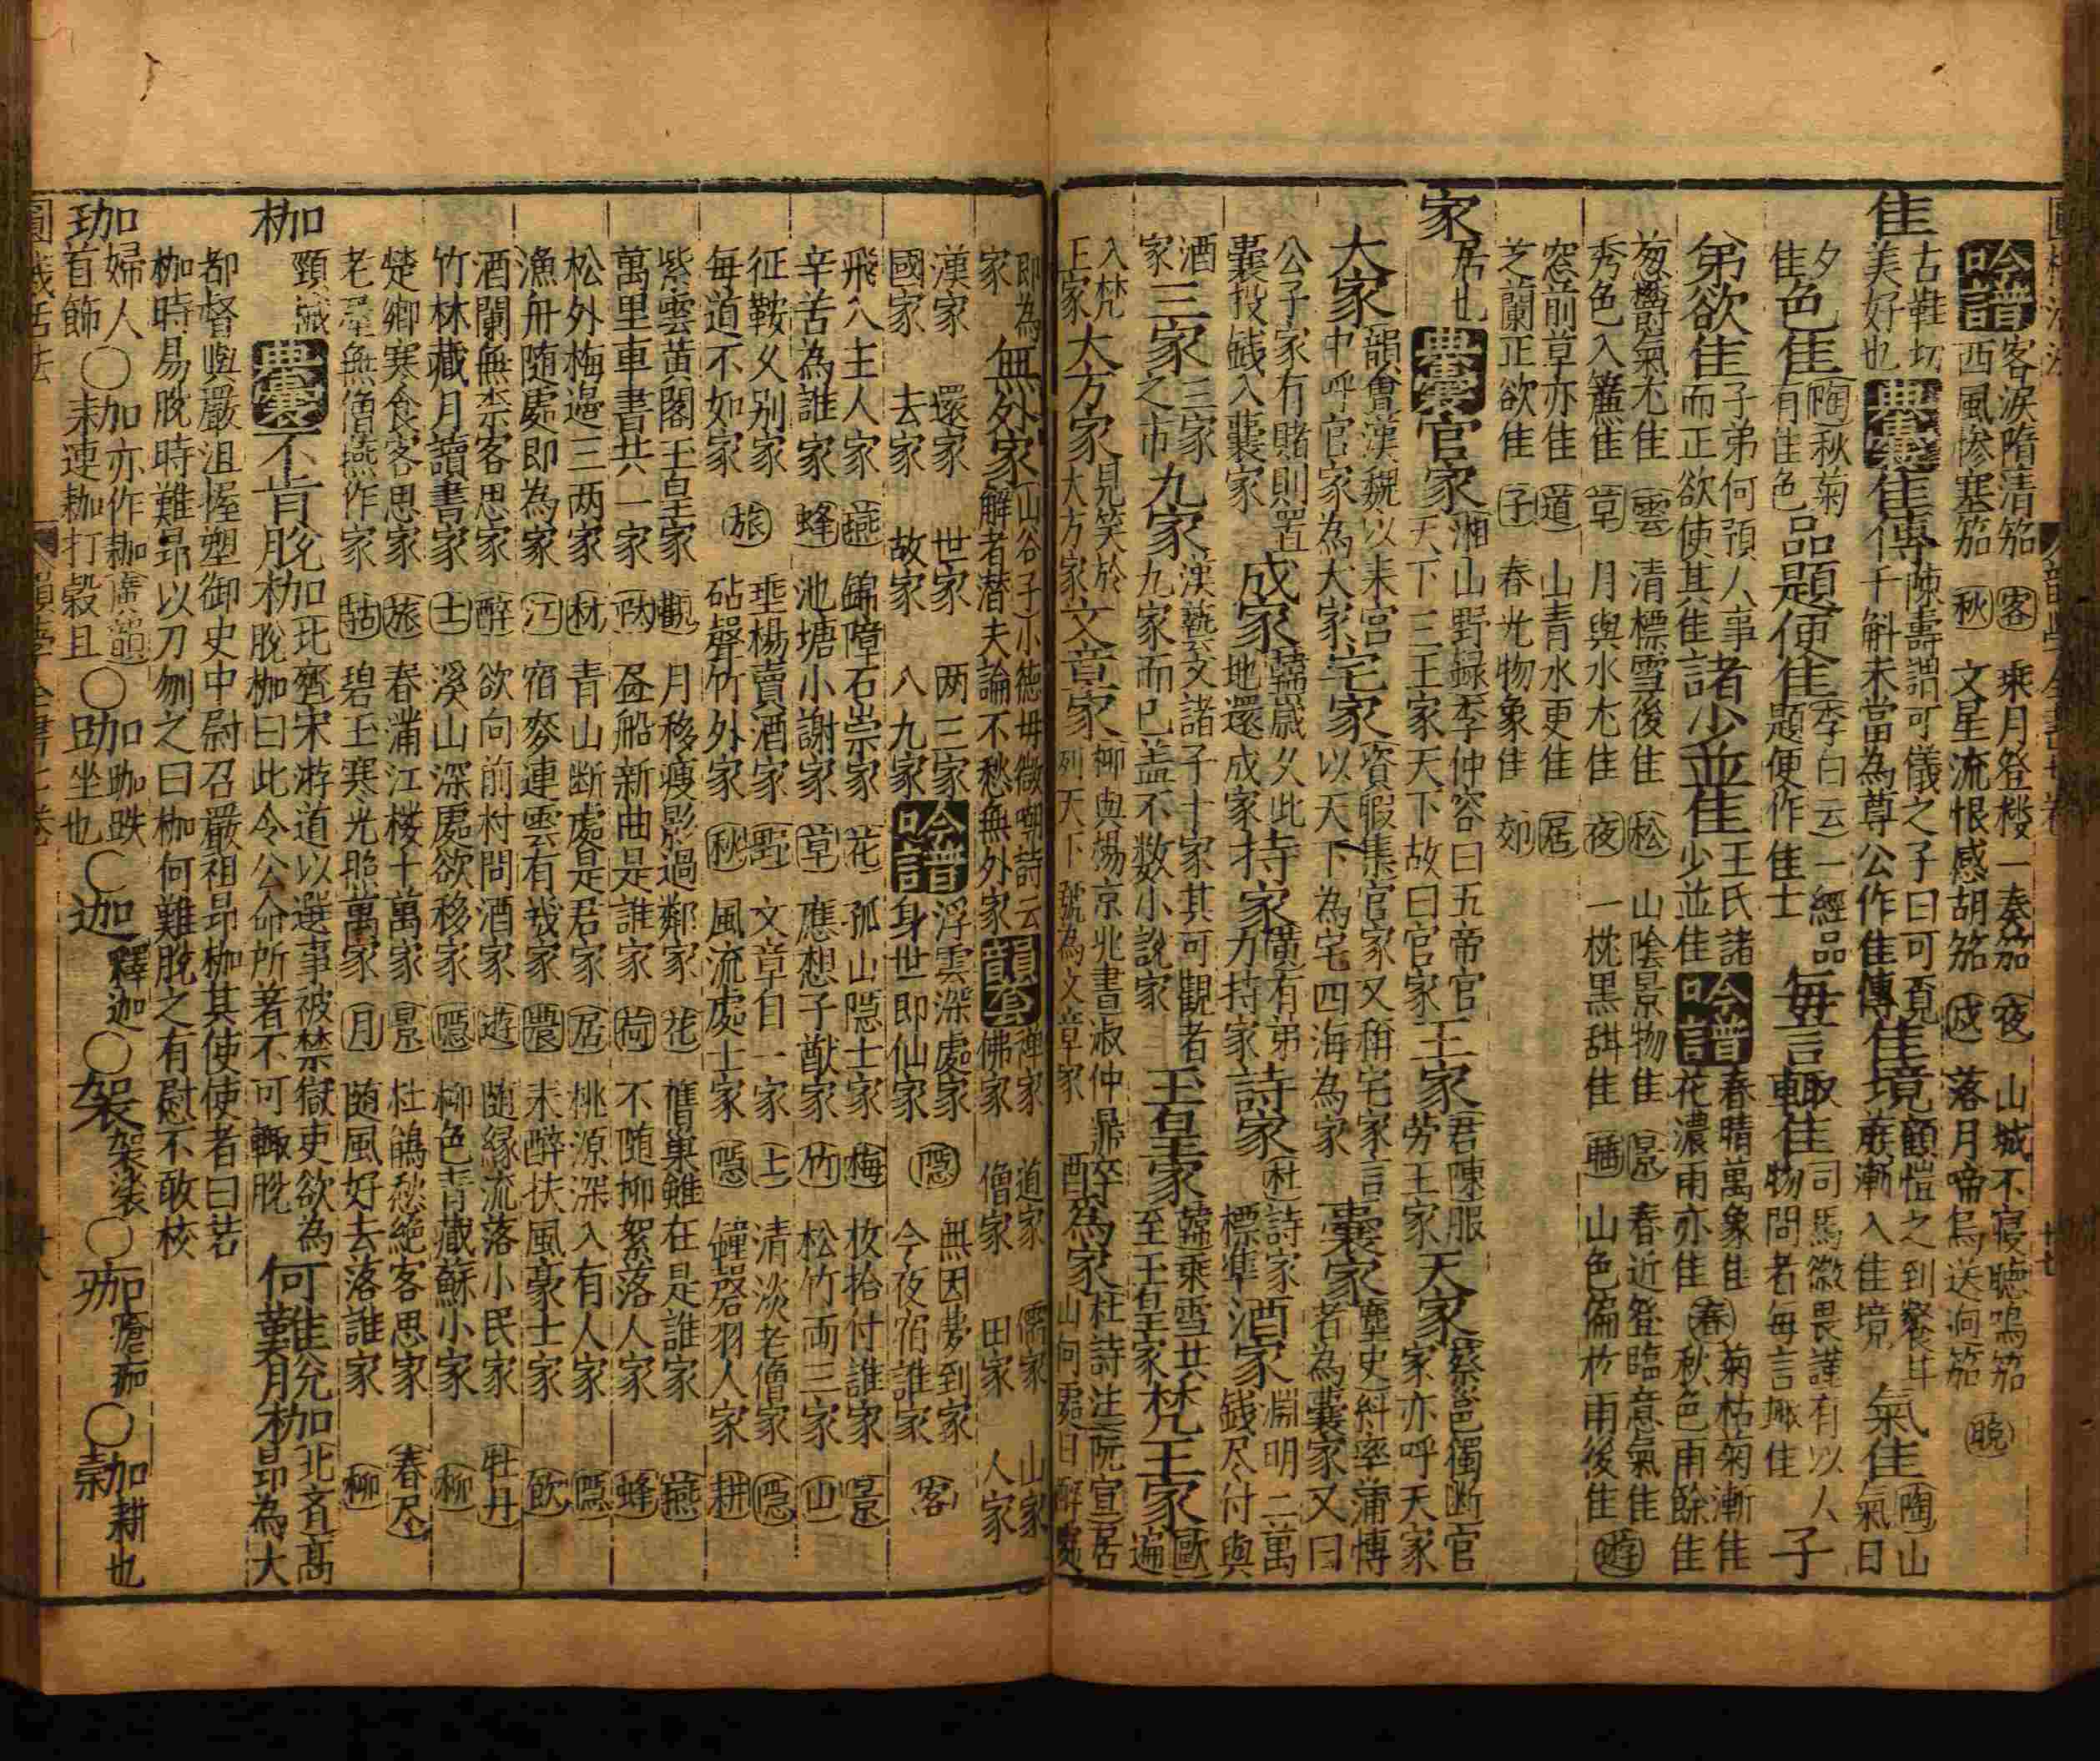 吟譜 客淚隋清笳 客 乗月登楼一奏笳 夜 山城不寝聴鳴笳
西風惨塞笳 秋 文星流恨感胡笳 成 落月啼烏送逈笳 晩
佳 古鞋切
美好也 典實 佳傳 陳壽謂可儀之子曰可覔
千斛未當為尊公作佳傳 佳境 顧愷之
漸入佳境 氣佳 陶山
氣日
夕佳 色佳 陶秋菊
有佳色 品題便佳 李白云一經品
題便作佳士 毎言輙佳 司馬徽畏謹有以人
物問者毎言輙佳 子
弟欲佳 子弟何預人事
而正欲使其佳 諸少並佳 王氏諸
少並佳 吟譜 春晴萬象佳 春 菊枯菊漸佳
花濃雨亦佳 秋色雨餘佳
葱欝氣尤佳 雲 清標雪後佳 松 山陰景物佳 景 春近登臨意氣佳
秀色入簾佳 草 月與水尤佳 夜 一枕黒甜佳 睡 山色偏於雨後佳 遊
窓前草亦佳 道 山青水更佳 居
芝蘭正欲佳 子 春光物象佳 郊
家 居也 典實 官家 湘山野録李仲容曰五帝官
天下三王家天下故曰官家 王家 君陳服
劳王家 天家 蔡邕獨断官
家亦呼天家
大家 韻會漢魏以来宫
中呼官家為大家 宅家 資暇集官家又稱宅家言
以天下為宅四海為家 囊家 塵史糾率蒲博
者為囊家又曰
公子家有賭則置
囊投錢入囊家 成家 韓歲久此
地還成家 持家 有弟
力持家 詩家 杜詩家
標準 酒家 淵明二萬
錢尽付與
酒家 三家 三家
之市 九家 漢藝文諸子十家其可觀者
九家而已盖不数小說家 玉皇家 韓乘雪共
至玉皇家 梵王家 歐
遍
入梵
王家 大方家 見笑於
大方家 文章家 柳與楊京兆書淑仲鼎
列天下號為文章家 醉為家 杜詩注阮宣居
山何處日醉處
即為
家 無外家 山谷子小徳母微嘲詩云
解者潜夫論不愁無外家 韻套 禅家 道家 儒家 山家
佛家 僧家 田家 人家
漢家 還家 世家 两三家 吟譜 浮雲深處家 隠 無因夢到家 客
國家 去家 故家 八九家 身世即仙家 今夜宿誰家
飛入主人家 燕 錦幛石崇家 花 孤山隠士家 梅 枚拾付誰家 景
辛苦為誰家 蜂 池塘小謝家 草 應想子猷家 竹 松竹両三家 山
征鞍久别家 旅 埀楊賣酒家 野 文章自一家 士 清淡老僧家 隠
毎道不如家 砧聲竹外家 秋 風流處士家 隠 鐘磬羽人家 耕
紫雲黄閣玉皇家 觀 月移瘦影過鄰家 花 舊巢雖在是誰家 燕
萬里車書共一家 昼船新曲是誰家 荷 不随柳絮落人家 蜂
松外梅邉三两家 林 青山断處是君家 居 桃源深入有人家 隠
漁舟随處即為家 江 宿麥連雲有幾家 農 未醉扶風豪士家 飲
酒闌無柰客思家 醉 欲向前村問酒家 遊 随縁流落小民家 牡丹
竹林藏月讀書家 士 溪山深處欲移家 隠 柳色青藏蘇小家 柳
楚鄉寒食客思家 旅 春滿江楼十萬家 景 杜鵑愁絶客思家 春尽
老屋無僧燕作家 碧玉寒光照萬家 月 随風好去落誰家 柳
枷 頸械 典實 不肯脫枷 北齊宋游道以選事被禁獄吏欲為
脫枷曰此令公命所著不可輙脫 何難脫枷 北斉髙
昂為大
都督與嚴沮握槊御史中尉召嚴祖昻枷其使使者曰若
枷時易脫時難昻以刀刎之曰枷何難脫之有慰不敢校
珈 婦人
首飾 ○加亦作耞廣韻
耒連耞打穀且 ○跏跏趺
坐也 ○迦 釋迦 ○袈 袈裟 ○痂 瘡痂 ○耕也